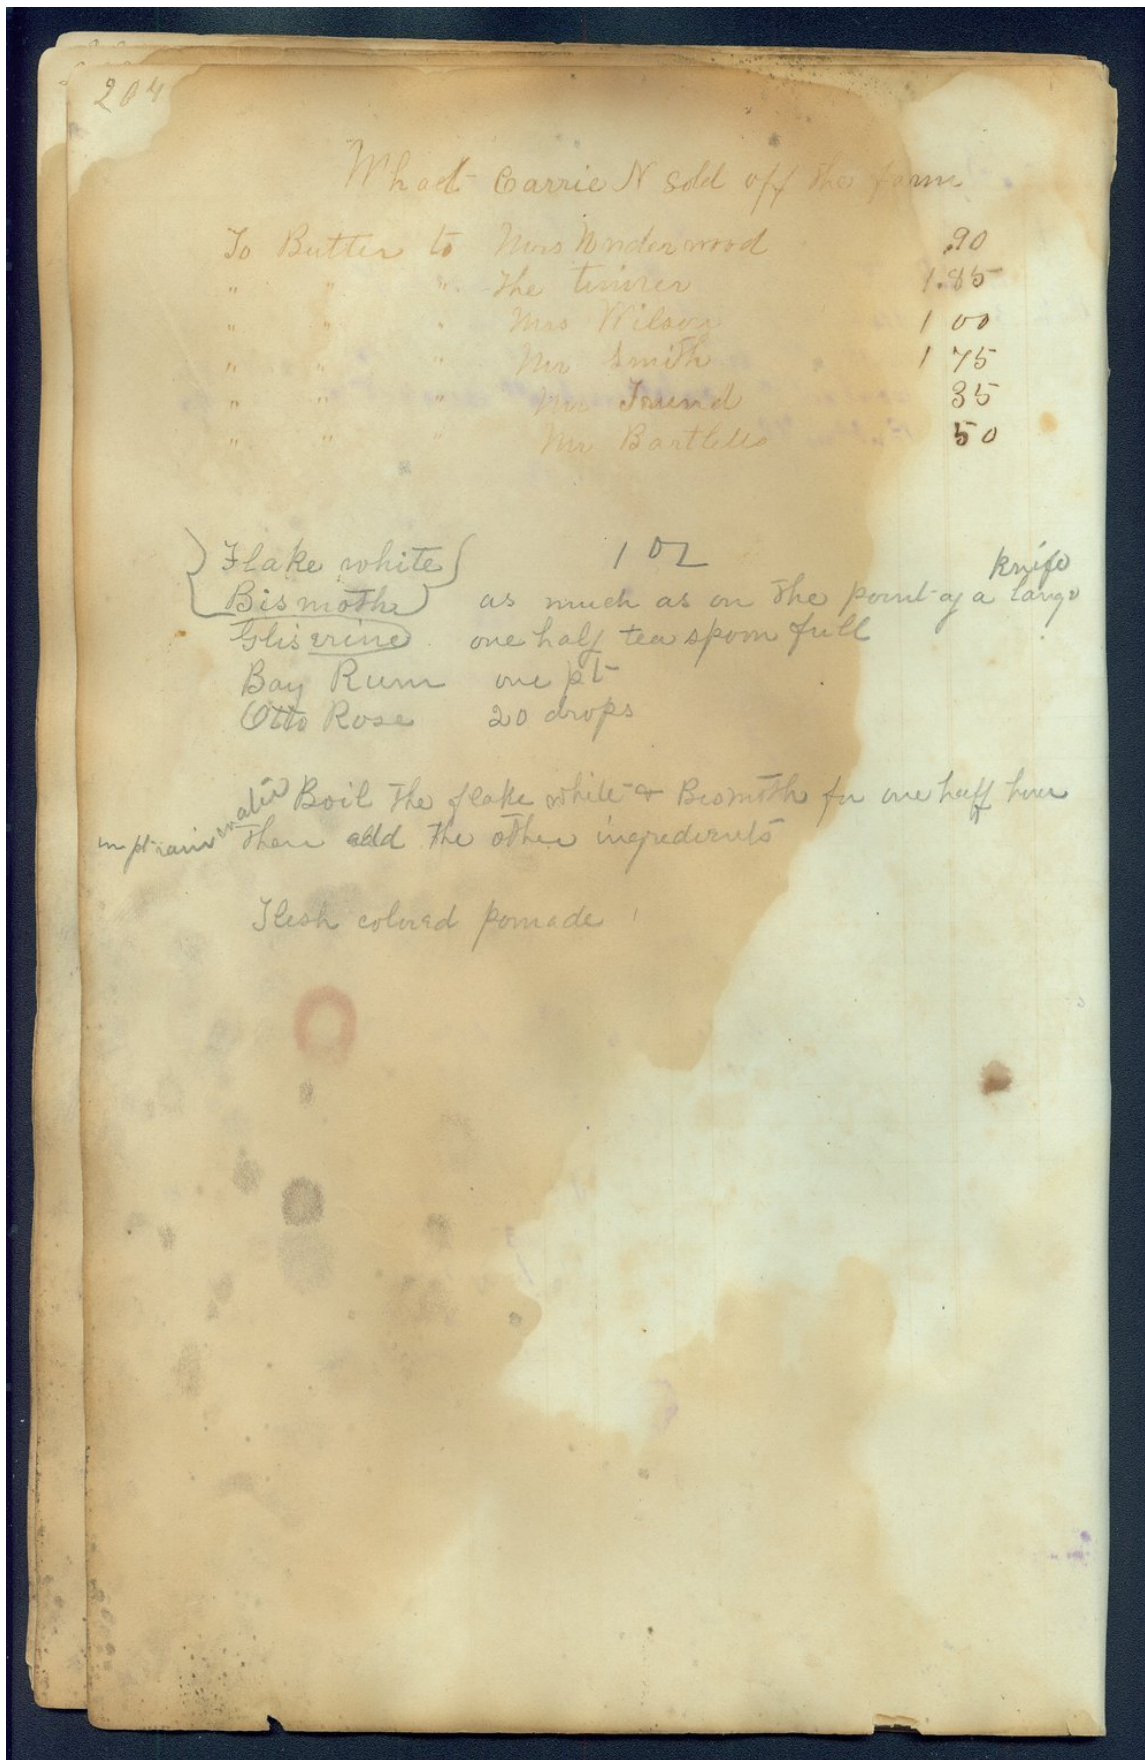 204
What Carrie N sold off the farm
To Butter to Mrs Underwood .90
" " " The 1.85
" " " Mrs Wilson 1 00
" " " Mr Smith 1 75
" " " Mr 35
" " " Mr Bartletts 50
Flake white 1 oz
knife
Bismoth as much as on the point of a large
Gliserine one half tea spoon full
Bay Rum one pt
Otto Rose 20 drops
Boil the flake white & Bismoth for one half hour
in pt rain water then add the other ingredients
Flesh colored pomade